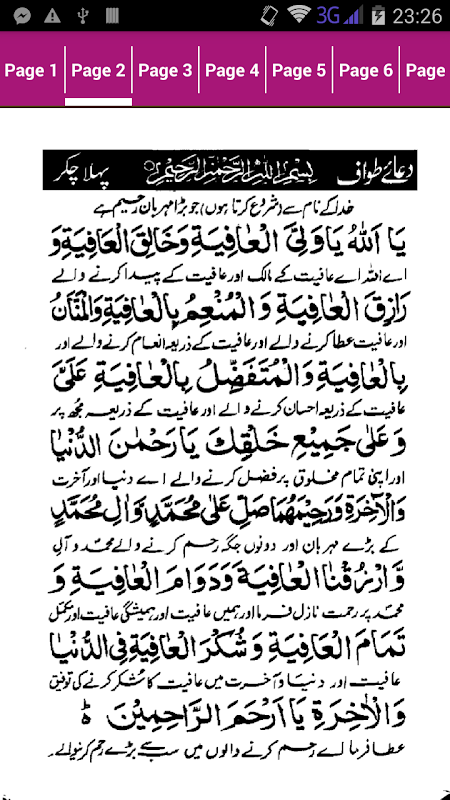 3G 23:26
Page 1 Page 2 Page 3 Page 4 Page 5 Page 6 Page
دعائے طواف بِسْمِ اللهِ الرَّحْمٰنِ الرَّحِيْمِ پہلا چکر
خدا کے نام سے (شروع کرتا ہوں) جو بڑا مہربان رحیم ہے
يَا اَللهُ يَا وَلِيَّ الْعَافِيَةِ وَخَالِقَ الْعَافِيَةِ وَ
اے اللہ اے عافیت کے مالک اور عافیت کے پیدا کرنے والے
رَازِقَ الْعَافِيَةِ وَالْمُنْعِمُ بِالْعَافِيَةِ وَالْمَنَّانُ
اور عافیت عطا کرنے والے اور عافیت کے ذریعہ انعام کرنے والے اور
بِالْعَافِيَةِ وَالْمُتَفَضِّلُ بِالْعَافِيَةِ عَلَيَّ
عافیت کے ذریعہ احسان کرنے والے اور عافیت کے ذریعہ مجھ پر
وَعَلٰى جَمِيْعِ خَلْقِكَ يَا رَحْمٰنَ الدُّنْيَا
اور اپنی تمام مخلوق پر فضل کرنے والے اے دنیا اور آخرت
وَالْاٰخِرَةِ وَرَحِيْمَهُمَا صَلِّ عَلٰى مُحَمَّدٍ وَّاٰلِ مُحَمَّدٍ
کے بڑے مہربان اور دونوں جگہ رحم کرنے والے محمد و آل
وَّارْزُقْنَا الْعَافِيَةَ وَدَوَامَ الْعَافِيَةِ وَ
محمد پر رحمت نازل فرما اور ہمیں عافیت اور ہمیشگی عافیت اور مکمل
تَمَامَ الْعَافِيَةِ وَشُكْرَ الْعَافِيَةِ فِي الدُّنْيَا
عافیت اور دنیا و آخرت میں عافیت کا شکر کرنے کی توفیق
وَالْاٰخِرَةِ يَا اَرْحَمَ الرَّاحِمِيْنَ ط
عطا فرما اے رحم کرنے والوں میں سب سے بڑے رحم کرنیوالے۔